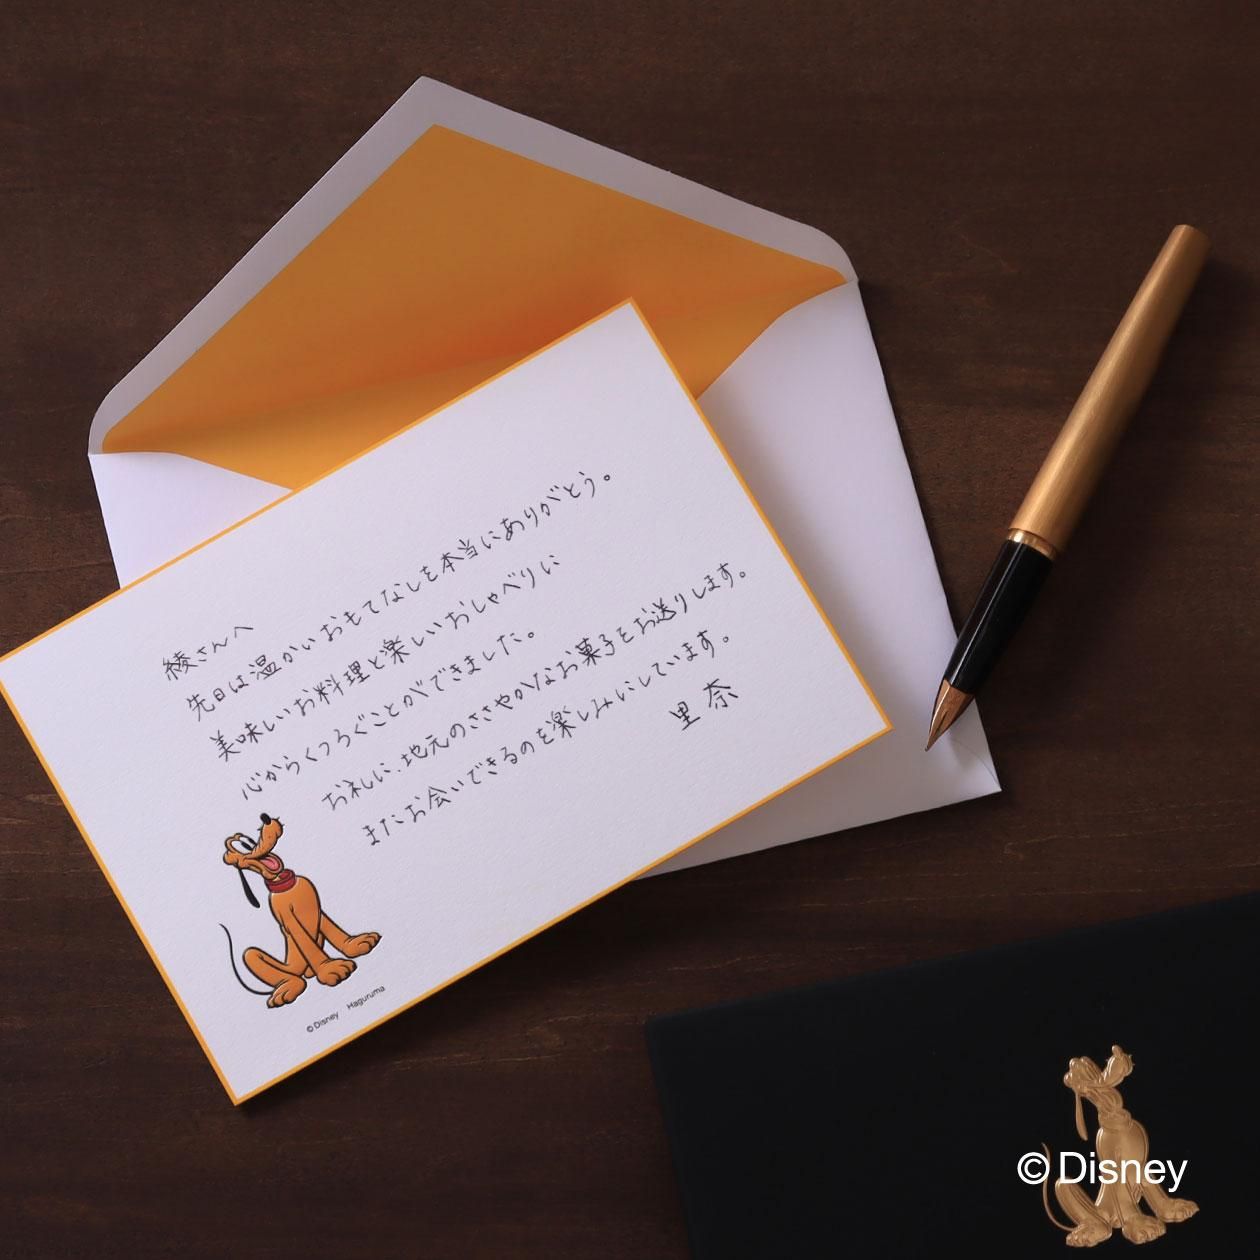 綾さんへ
先日は温かいおもてなしを本当にありがとう。
美味しいお料理と楽しいおしゃべりに
心からくつろぐことができました。
お礼に、地元のささやかなお菓子をお送りします。
またお会いできるのを楽しみにしています。
里奈
© Disney Haguruma
© Disney